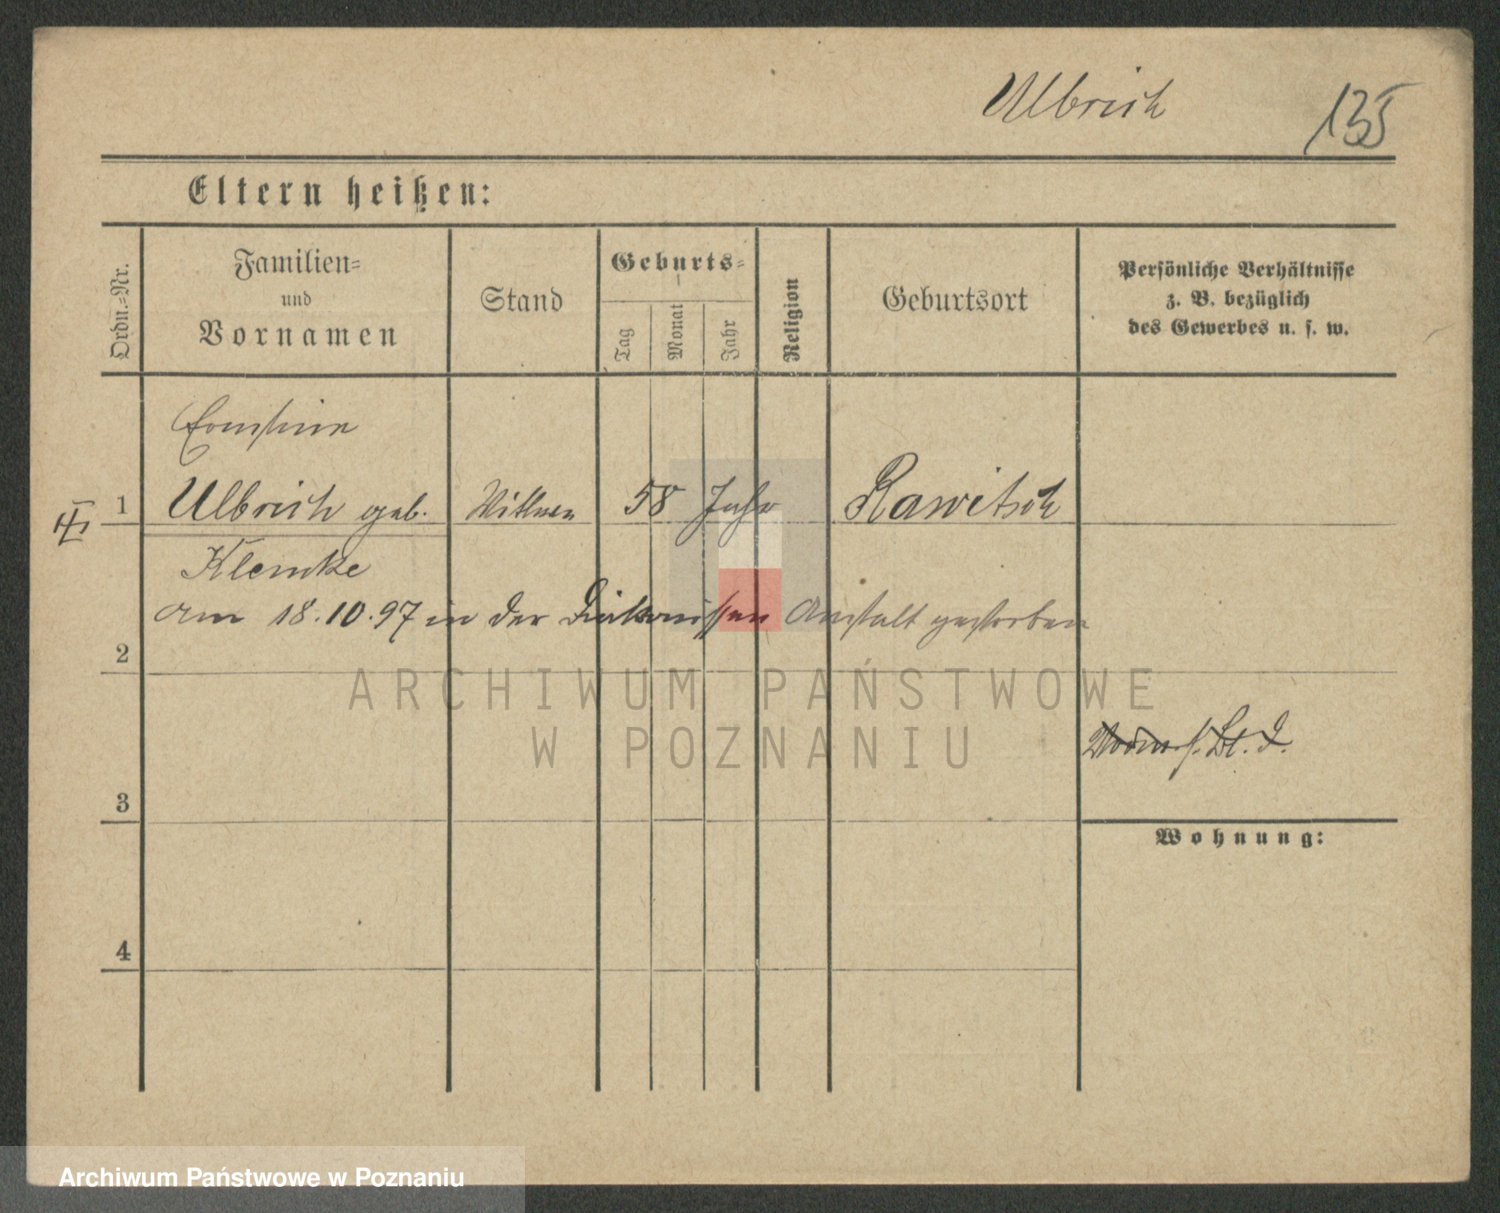 Ulbrich 135
Eltern heißen:
Ordn.-Nr.
Familien-
und
Vornamen
Stand
Geburts-
Tag
Monat
Jahr
Religion
Geburtsort
Persönliche Verhältnisse
z. B. bezüglich
des Gewerbes u. s. w.
Ernstine
1 Ulbrich geb. Wittwe 58 Jahr Rawitsch
Klemke
am 18.10.97 in der Diakonissen Anstalt gestorben
2
ARCHIWUM PAŃSTWOWE
W POZNANIU
3
Wohnung:
4
Archiwum Państwowe w Poznaniu